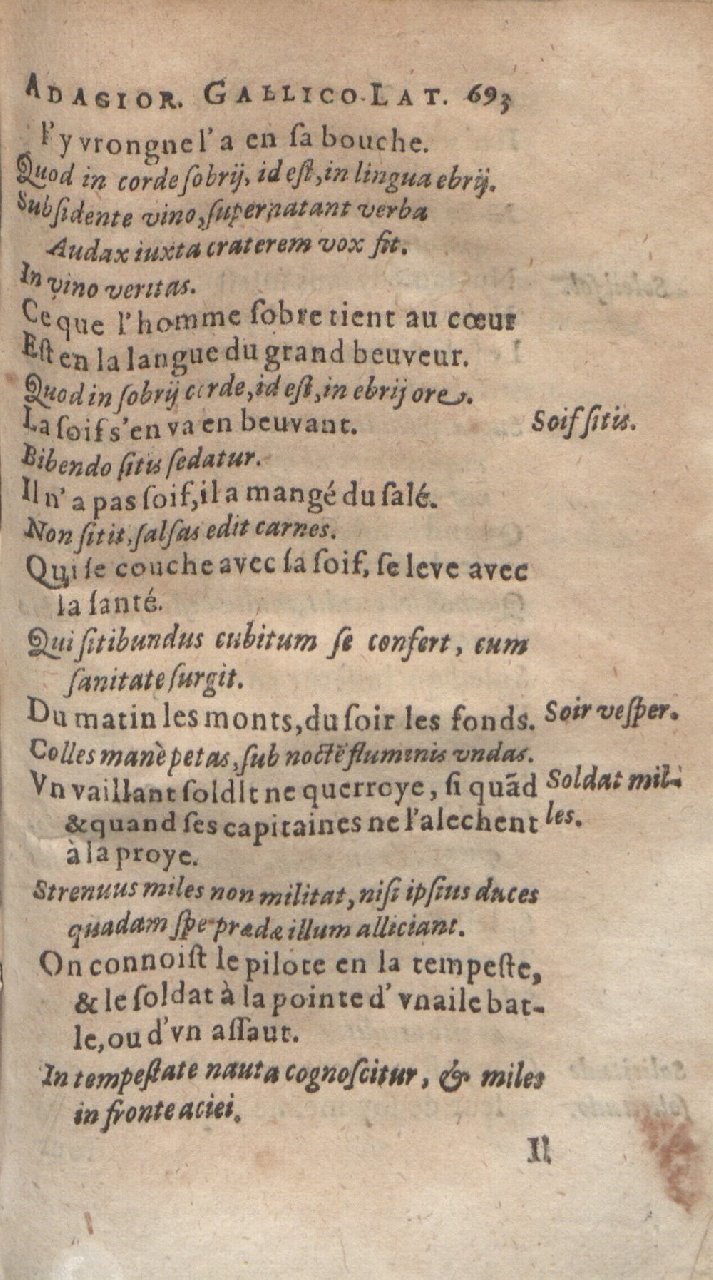 ADAGIOR. GALLICO-LAT. 693
l'yvrongne l'a en sa bouche.
Quod in corde sobrij, id est, in lingua ebrij.
Subsidente vino, supernatant verba
Audax iuxta craterem vox fit.
In vino veritas.
Ce que l'homme sobre tient au cœur
Est en la langue du grand beuveur.
Quod in sobrij corde, id est, in ebrij ore.
La soif s'en va en beuvant. Soif sitis.
Bibendo sitis sedatur.
Il n'a pas soif, il a mangé du salé.
Non sitit, salsas edit carnes.
Qui se couche avec sa soif, se leve avec
la santé.
Qui sitibundus cubitum se confert, cum
sanitate surgit.
Du matin les monts, du soir les fonds. Soir vesper.
Colles manè petas, sub noctē fluminis vndas.
Vn vaillant soldlt ne querroye, si quãd Soldat mil-
& quand ses capitaines ne l'alechent les.
à la proye.
Strenuus miles non militat, nisi ipsius duces
quadam spe prædæ illum alliciant.
On connoist le pilote en la tempeste,
& le soldat à la pointe d'vnaile bat-
le, ou d'vn assaut.
In tempestate nauta cognoscitur, & miles
in fronte aciei.
Il